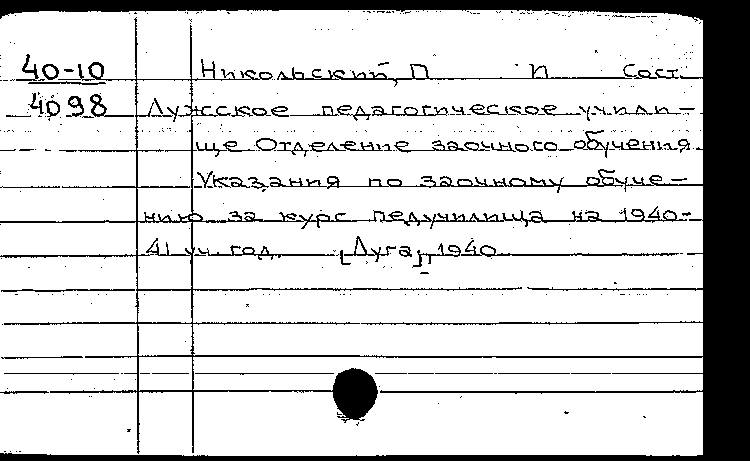 40-10 Никольский, П П Сост.
4098 Лужское педагогическое учили-
ще Отделение заочного обучения
Указания по заочному обуче-
нию за курс педучилища на 1940-
41 уч. год. [Луга], 1940